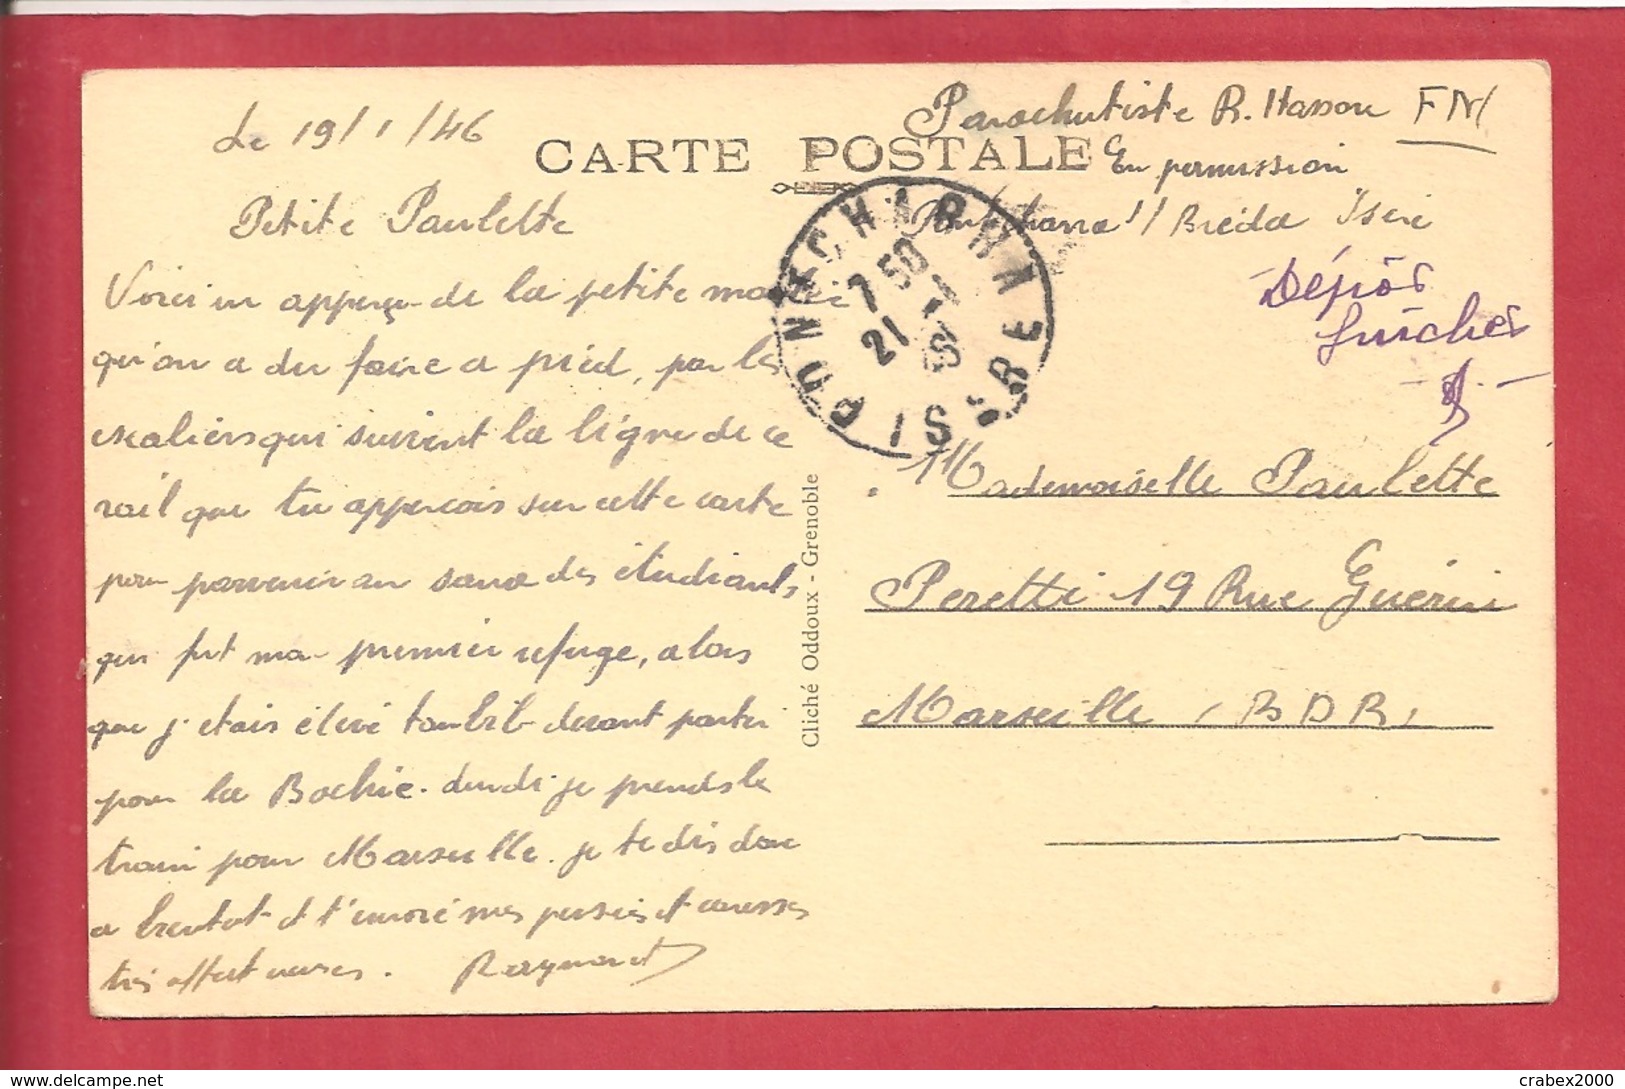 Le 19/1/46
CARTE POSTALE
Parachutiste R. Hasson FM
En permission
Pontcharra s/ Breda Isère
Dépôt
guichet
PONTCHARRA ISERE
7 50
21 -1
Petite Paulette
Voici un apperçu de la petite
qu'on a du faire a pied, par les
escaliers qui suivent la ligne de ce
rail que tu apperçois sur cette carte
pour parvenir au sana des étudiants
qui fut mon premier refuge, alors
que j'etais élevé toubib devant partir
pour la Bochie. Lundi je prends le
train pour Marseille. je te dis donc
a bientot et t'envoie mes pensées et caresses
très affectueuses. Raymond
Cliché Oddoux - Grenoble
Mademoiselle Paulette
Peretti 19 Rue Guérin
Marseille (B D R)
delcampe.net
crabex2000